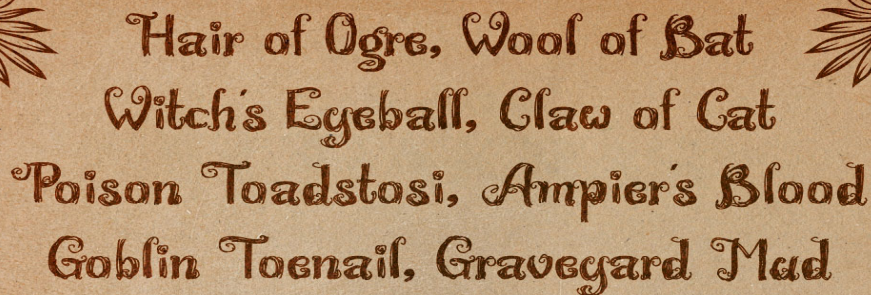 Hair of Ogre, Wool of Bat
Witch's Eyeball, Claw of Cat
Poison Toadstosi, Ampier's Blood
Goblin Toenail, Graveyard Mud